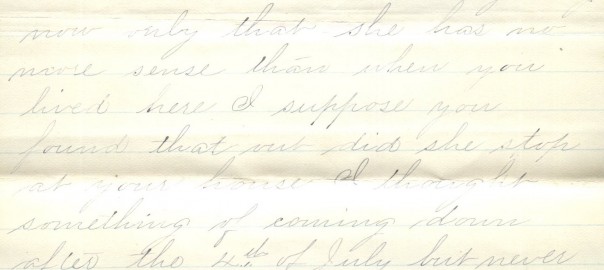 now only that she has no
more sense than when you
lived here I suppose you
found that out did she stop
at your house I thought
something of coming down
after the 4th of July but never